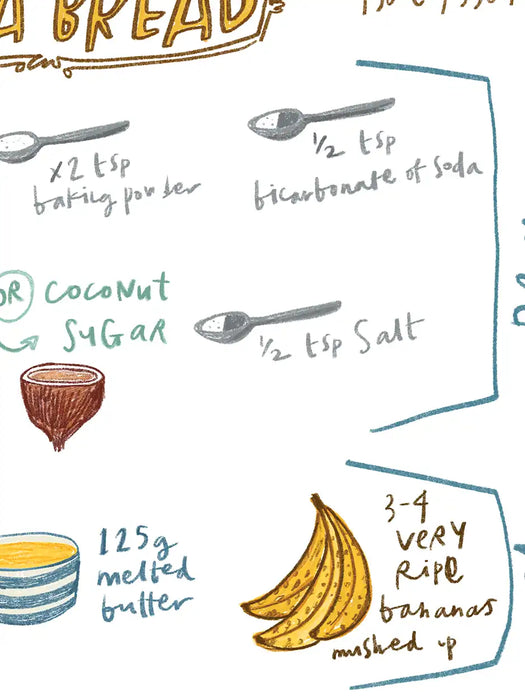 A BREAD
x2 tsp
baking powder
1/2 tsp
bicarbonate of soda
OR COCONUT
SUGAR
1/2 tsp Salt
125g
melted
butter
3-4
VERY
RIPE
bananas
mushed up